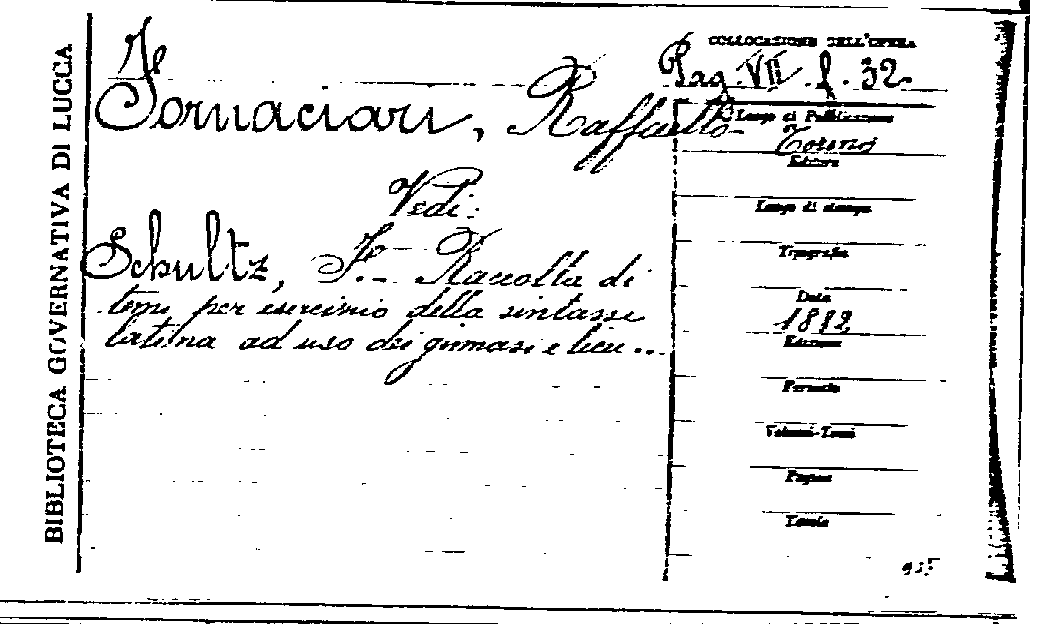 BIBLIOTECA GOVERNATIVA DI LUCCA
Fornaciari, Raffaello
Vedi:
Schultz, F. - Raccolta di
temi per esercizio della sintassi
latina ad uso dei ginnasi e licei...
COLLOCAZIONE DELL'OPERA
Pag. VII f. 32
Luogo di Pubblicazione
Torino
Editore
Luogo di stampa
Tipografia
Data
1812
Edizione
Formato
Volumi-Tomi
Pagine
Tavole